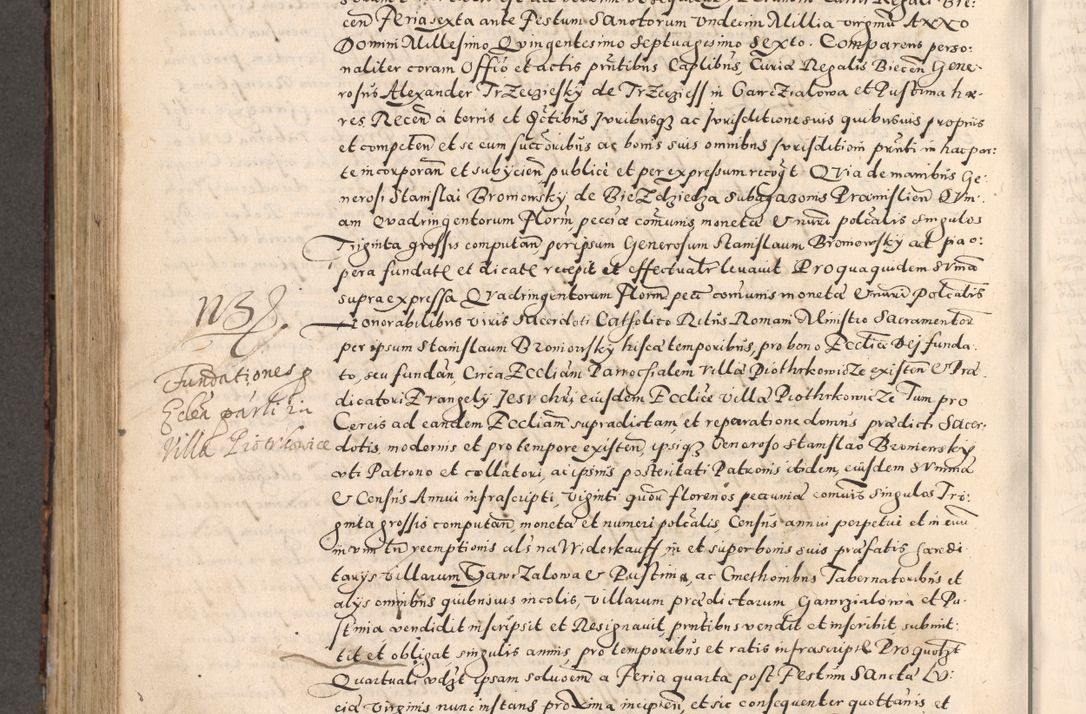 cen Feria sexta ante Festum Sanctorum Undecim Millia virginũ ANNO
Domini Millesimo Quingentesimo Septuagesimo Sexto. Comparens perso-
naliter coram Offio et actis pñtibus Caplibus, Curiæ Regalis Biecen Gene-
rosus Alexander Trzecziesky de Trzecziess in Gawrzialowa et Pustinia hæ-
res Recen a terris et Juribusq ac Jurisditione suis quibusuis proprijs
et competen et se cum succoribus ac bonis suis omnibus Jurisditioni pñti in hac par-
te incorporan et subijcien publice et per expressum recogt Quia de manibus Ge-
nerosi Stanislai Bromowsky de Biezdziedza Subagazonis Præmislien Sum-
am Quadringentorum Floren pecciæ comunis monetæ & numi polcalis singulos
Triginta grossis computan per ipsum Generosum Stanislaum Bromowsky ad pia o-
pera fundate et dicate recepit et effectualr leuauit Pro qua quidem Suma
supra expressa Quadringentorum Floren pecc comunis monetæ & numi Polcalis
Honorabilibus viris Sacerdoti Catholico Ritus Romani Ministro Sacramentor
per ipsum Stanislaum Bromowsky hisce temporibus, pro bono Eccliæ Dej funda-
to, seu fundan, Circa Eccliam Parrochialem villæ Piothrkowicze existen & Præ-
dicatori Evangelij Jesu chri, eiusdem Eccliæ villæ Piothrkowicze Tum pro
Cereis ad eandem Eccliam supradictam et reparatione domus prædicti Sacer-
dotis, modernis et pro tempore existen, ipsiq Generoso Stanislao Bromowsky
uti Patrono et collatori, ac ipsius posteritati Patronis ibidem, eiusdem Summa
& Census Annui infrascripti, viginti quor florenos pecuniæ comuis singulos Tri-
ginta grossis computan, moneta et numeri polcalis, Census annui perpetui et in euu
in vim tn reemptionis als na Widerkauff in et super bonis suis præfatis hæredi-
tarys villarum Gawrzalowa & Pustinia, ac Cmethonibus Tabernatoribus et
alijs omnibus quibusuis incolis, villarum prædictarum Gawrzialowa et Pu-
stinia vendidit inscripsit et Resignauit, pñtibus vendit et inscribit submit-
tit et obligat singulis annis, pro temporibus et ratis infrascripte Pro quolzt
Quartuali vdzt ipsam soluoem a Feria quarta post Festum Sanctæ Lu-
ciæ virginis nunc instans proxima incipien, et sic consequenter quottanis et
NB
Fundationes p
Eclen parti in
Villa Piotrkowice